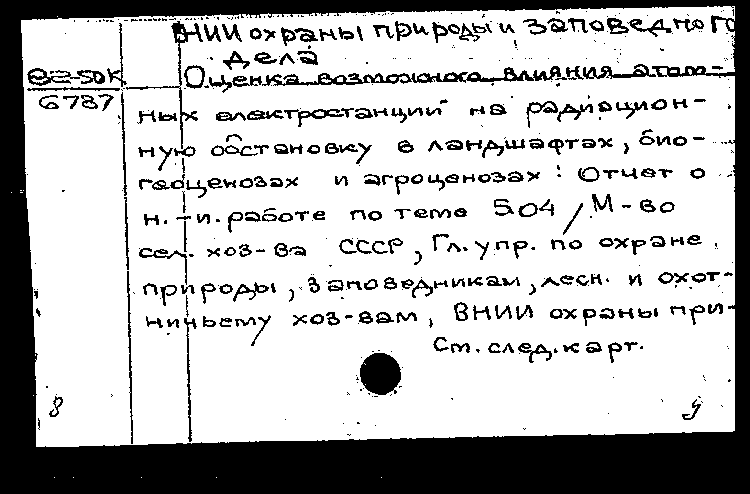 ВНИИ охраны природы и заповедного
дела
82-50К Оценка возможного влияния атом-
6787
ных електростанций на радиацион-
ную обстановку в ландшафтах, био-
геоценозах и агроценозах: Отчет о
н.-и. работе по теме 5.04/М-во
сел. хоз-ва СССР, Гл. упр. по охране
природы, заповедникам, лесн. и охот-
ничьему хоз-вам, ВНИИ охраны при-
См. след. карт.
8